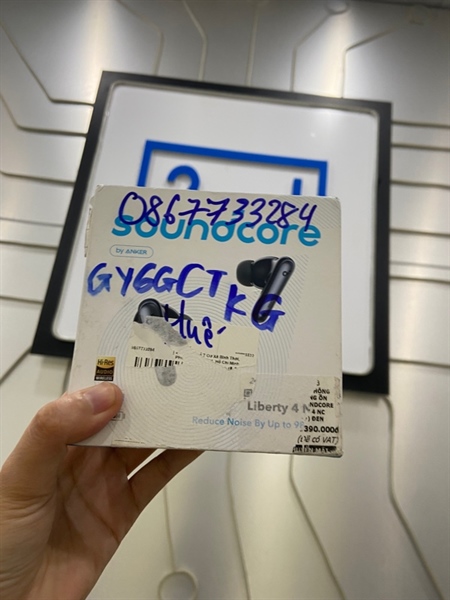 0867733284
soundcore
by ANKER
GY6GCT KG
Huê
Hi-Res
AUDIO
WIRELESS
Liberty 4 N
Reduce Noise By Up to 98
4 NC
ĐEN
390.000đ
(Đã có VAT)